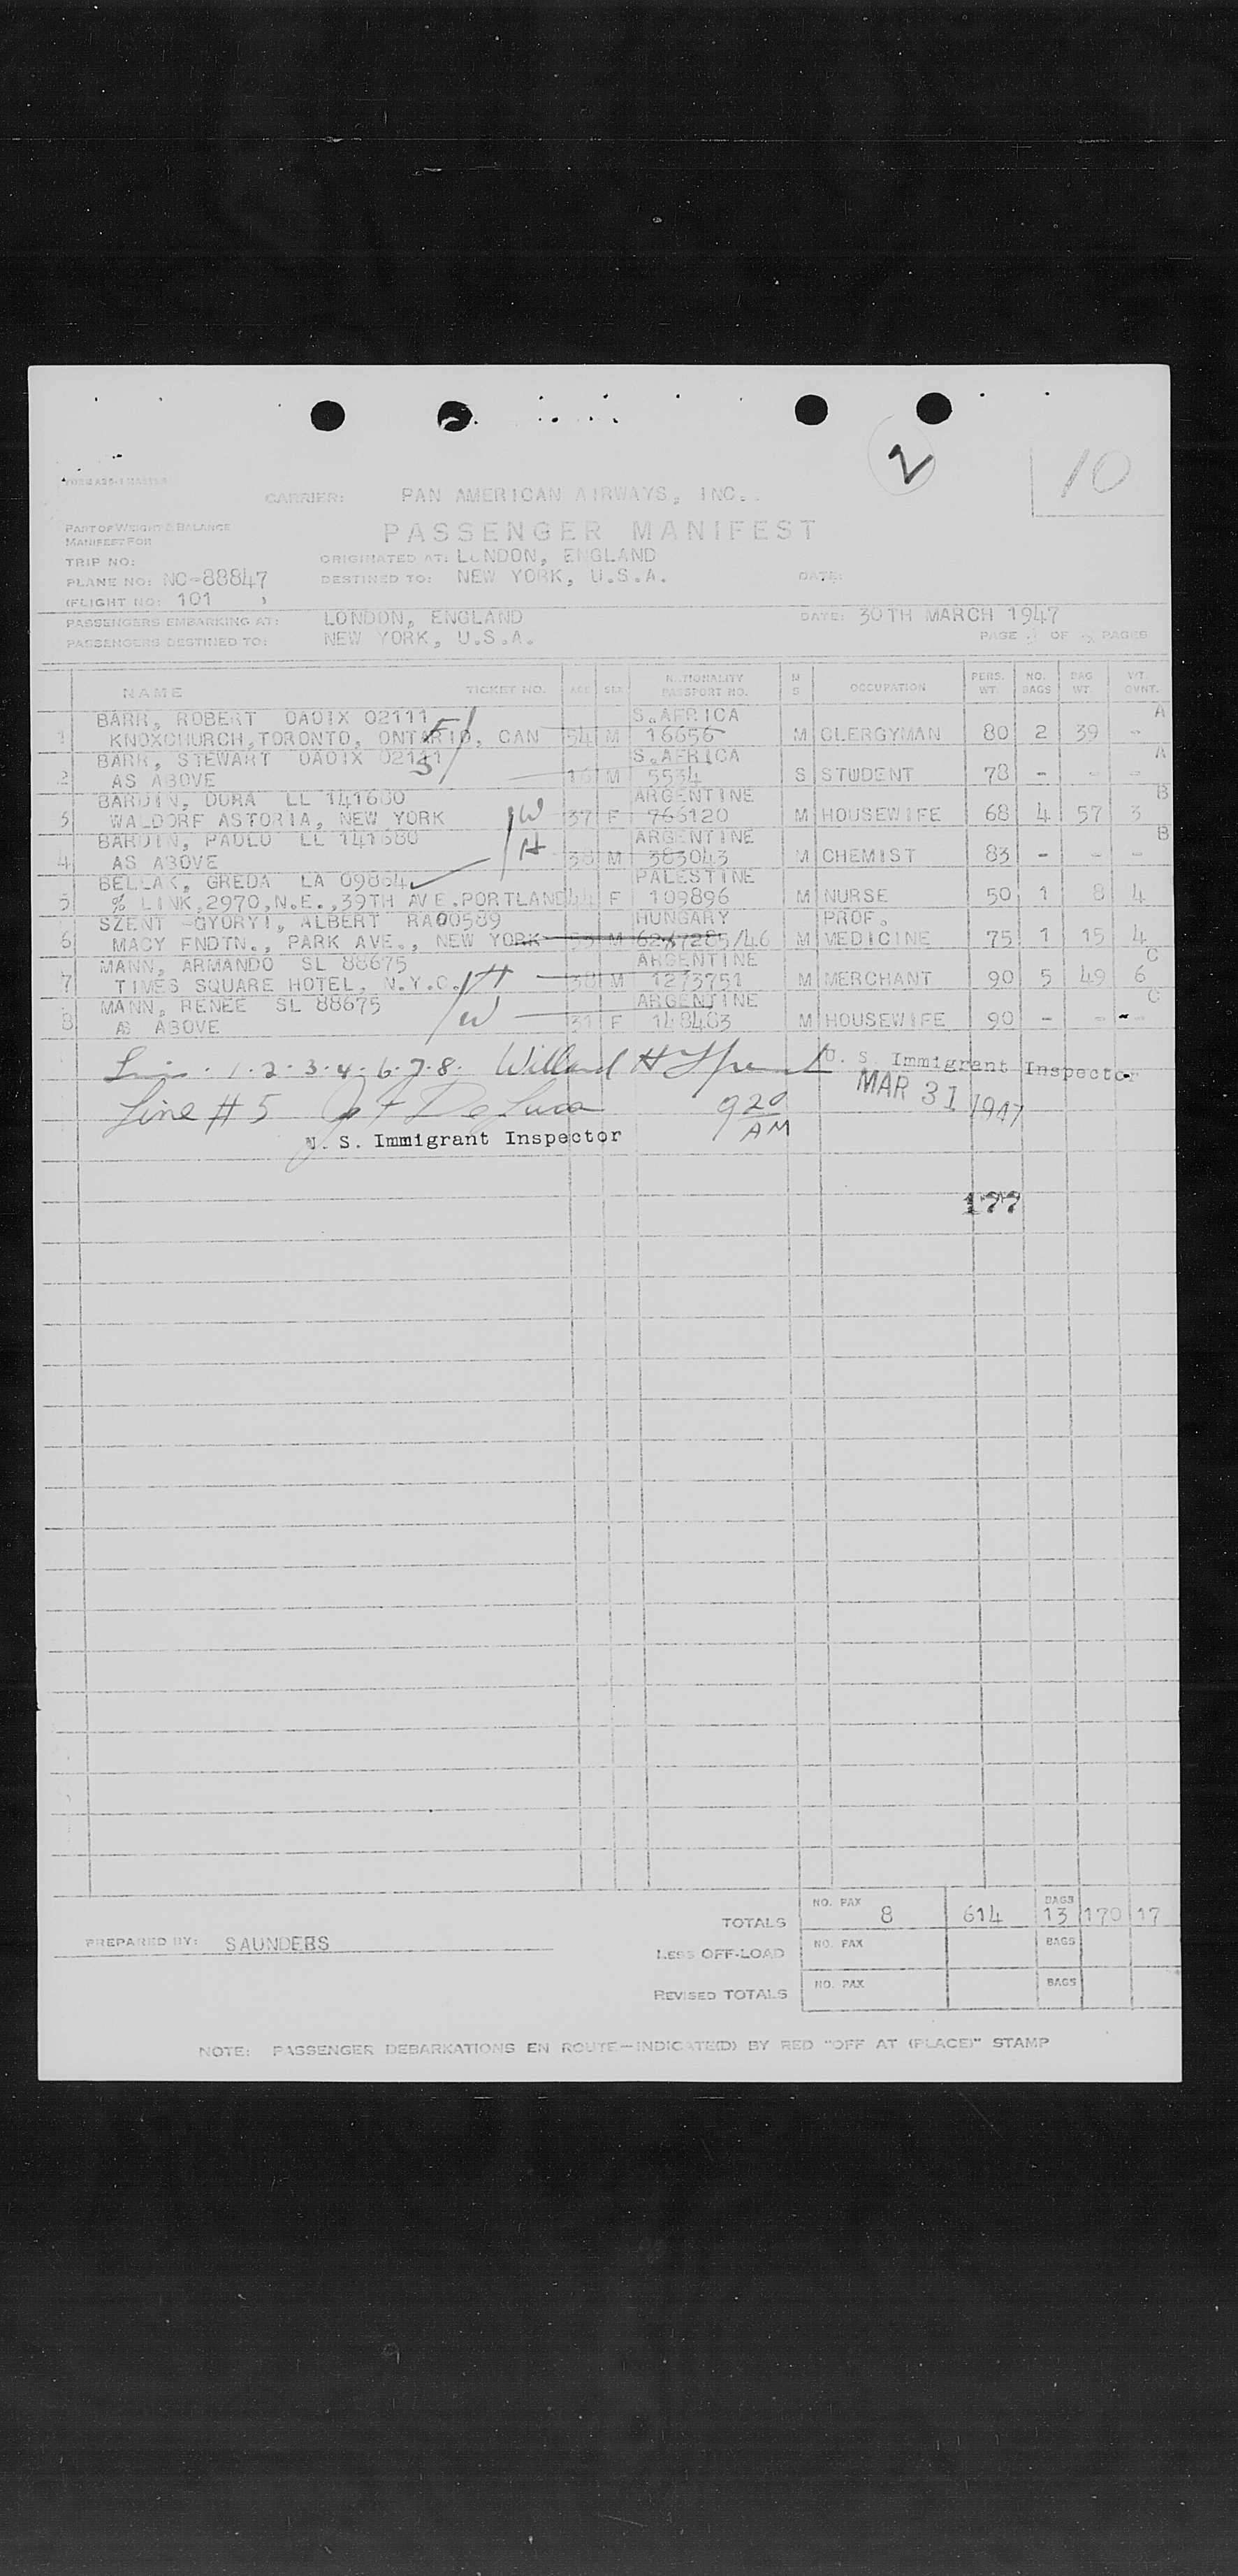 2
10
FORM A25-1 MASTER
CARRIER: PAN AMERICAN AIRWAYS, INC.
PART OF WEIGHT & BALANCE
MANIFEST FOR
PASSENGER MANIFEST
TRIP NO:
ORIGINATED AT: LONDON, ENGLAND
PLANE NO: NC-88847
DESTINED TO: NEW YORK, U.S.A. DATE:
(FLIGHT NO: 101 )
PASSENGERS EMBARKING AT: LONDON, ENGLAND DATE: 30TH MARCH 1947
PASSENGERS DESTINED TO: NEW YORK, U.S.A. PAGE OF PAGES
NAME TICKET NO. AGE SEX NATIONALITY PASSPORT NO. M S OCCUPATION PERS. WT. NO. BAGS BAG WT. WT. OVNT.
BARR, ROBERT OAOIX 02111 S.AFRICA A
1 KNOXCHURCH, TORONTO, ONTARIO, CAN 54 M 16656 M CLERGYMAN 80 2 39 -
F
BARR, STEWART OAOIX 02111 S.AFRICA A
2 AS ABOVE 16 M 5534 S STUDENT 78 - - -
S
BARDIN, DORA LL 141680 ARGENTINE B
3 WALDORF ASTORIA, NEW YORK W 37 F 766120 M HOUSEWIFE 68 4 57 3
BARDIN, PAULO LL 141680 ARGENTINE B
4 AS ABOVE H 38 M 383043 M CHEMIST 83 - - -
BELLAK, GREDA LA 09864 PALESTINE
5 % LINK, 2970, N.E., 39TH AVE. PORTLAND 44 F 109896 M NURSE 50 1 8 4
SZENT -GYORYI, ALBERT RA00589 HUNGARY PROF.
6 MACY FNDTN., PARK AVE., NEW YORK 53 M /46 M MEDICINE 75 1 15 4
MANN, ARMANDO SL 88675 ARGENTINE C
7 TIMES SQUARE HOTEL, N.Y.C. H 38 M 1273751 M MERCHANT 90 5 49 6
MANN, RENEE SL 88675 ARGENTINE C
8 AS ABOVE W 31 F 148483 M HOUSEWIFE 90 - - -
1-2-3-4-6-7-8. Willard H U. S. Immigrant Inspector
MAR 31 1947
Line # 5 De Luca 9 20 AM
U. S. Immigrant Inspector
177
TOTALS NO. PAX 8 614 BAGS 13 170 17
PREPARED BY: SAUNDERS
LESS OFF-LOAD NO. PAX BAGS
REVISED TOTALS NO. PAX BAGS
NOTE: PASSENGER DEBARKATIONS EN ROUTE—INDICATE(D) BY RED "OFF AT (PLACE)" STAMP